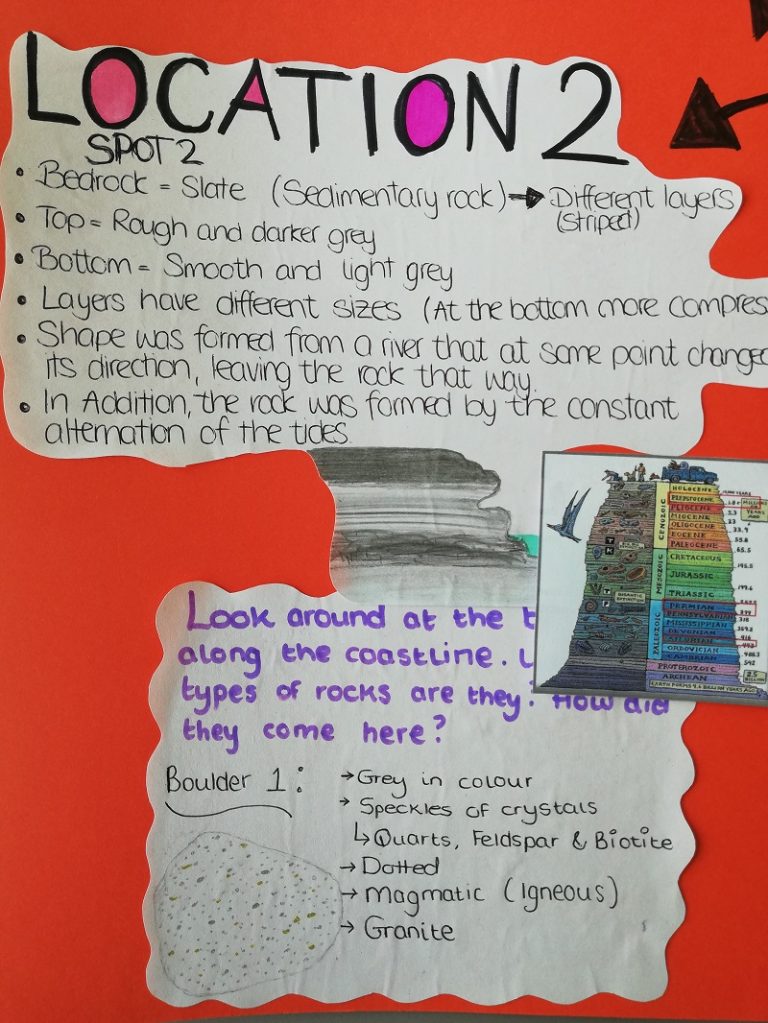 LOCATION 2
SPOT 2
• Bedrock = Slate (Sedimentary rock) → Different layers
(striped)
• Top = Rough and darker grey
• Bottom = Smooth and light grey
• Layers have different sizes (At the bottom more compres
• Shape was formed from a river that at some point changed
its direction, leaving the rock that way.
• In Addition, the rock was formed by the constant
alternation of the tides
HOLOCENE
PLEISTOCENE
PLIOCENE
MIOCENE
OLIGOCENE
EOCENE
PALEOCENE
CENOZOIC
CRETACEOUS
JURASSIC
TRIASSIC
MESOZOIC
PERMIAN
PENNSYLVANIAN
MISSISSIPPIAN
DEVONIAN
SILURIAN
ORDOVICIAN
CAMBRIAN
PALEOZOIC
PROTEROZOIC
ARCHEAN
EARTH FORMS 4.6 BILLION YEARS AGO
23
33.9
55.8
65.5
145.5
199.6
299
318
359.2
416
488.3
542
2.5 BILLION
Look around at the
along the coastline.
types of rocks are they? How did
they come here?
Boulder 1:
→ Grey in colour
→ Speckles of crystals
↳ Quarts, Feldspar & Biotite
→ Dotted
→ Magmatic (Igneous)
→ Granite